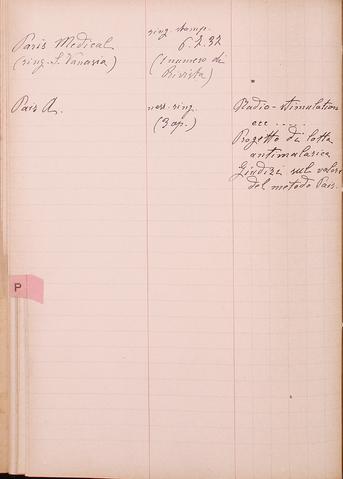 Paris Medical
(ring. S. Vanassa)
ring. stamp.
6.2.32
(1 numero di
Rivista)
Pais A.
ness. ring.
(3 op.)
Radio-stimulation
ecc ....
Progetto di lotta
antimalarica
Giudizi sul valore
del metodo Pais.
P